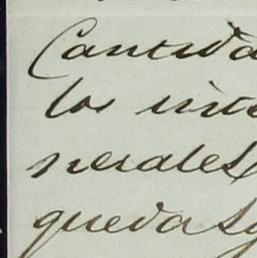 Cantida
los inte
nerales
quedas